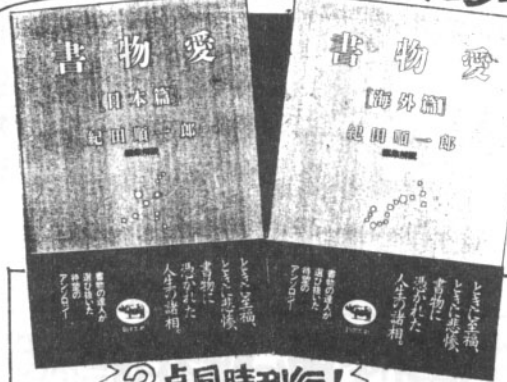 書物愛
[日本篇]
紀田順一郎
編集解説
ときに至福、
ときに悲惨、
書物に
憑かれた
人生の諸相。
書物の達人が
選び抜いた
待望の
アンソロジー
書物愛
[海外篇]
紀田順一郎
編集解説
ときに至福、
ときに悲惨、
書物に
憑かれた
人生の諸相。
書物の達人が
選び抜いた
待望の
アンソロジー
2点同時刊行!